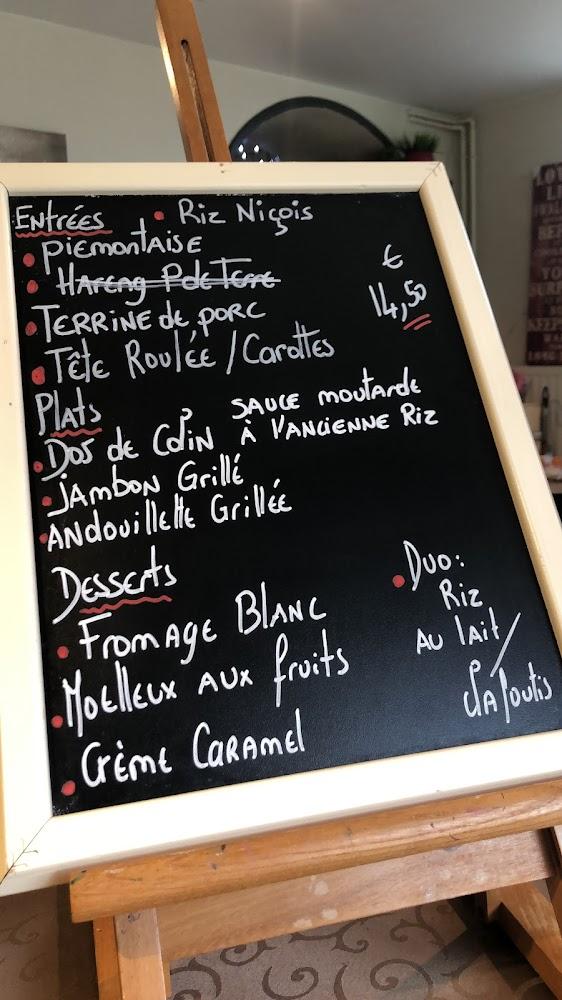 Entrées • Riz Niçois
• Piemontaise
• Hareng P de Terre
€
14,50
• Terrine de porc
• Tête Roulée / Carottes
Plats
• Dos de Colin sauce moutarde
à l'ancienne Riz
• Jambon Grillé
• Andouillette Grillée
Desserts
• Fromage Blanc
• Moelleux aux fruits
• Crème Caramel
• Duo:
Riz
au lait /